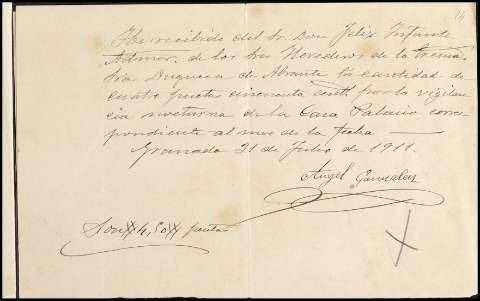 14
He recibido del Sr. Don Felix Infante
Admor. de los Sres Herederos de la Excma.
Sra Duquesa de Abrante la cantidad de
cuatro pesetas cincuenta cent. por la vigilan
cia nocturna de la Casa Palacio corres-
pondiente al mes de la fecha
Granada 31 de Julio de 1911.
Angel Gonzalez
Son 4,50 pesetas